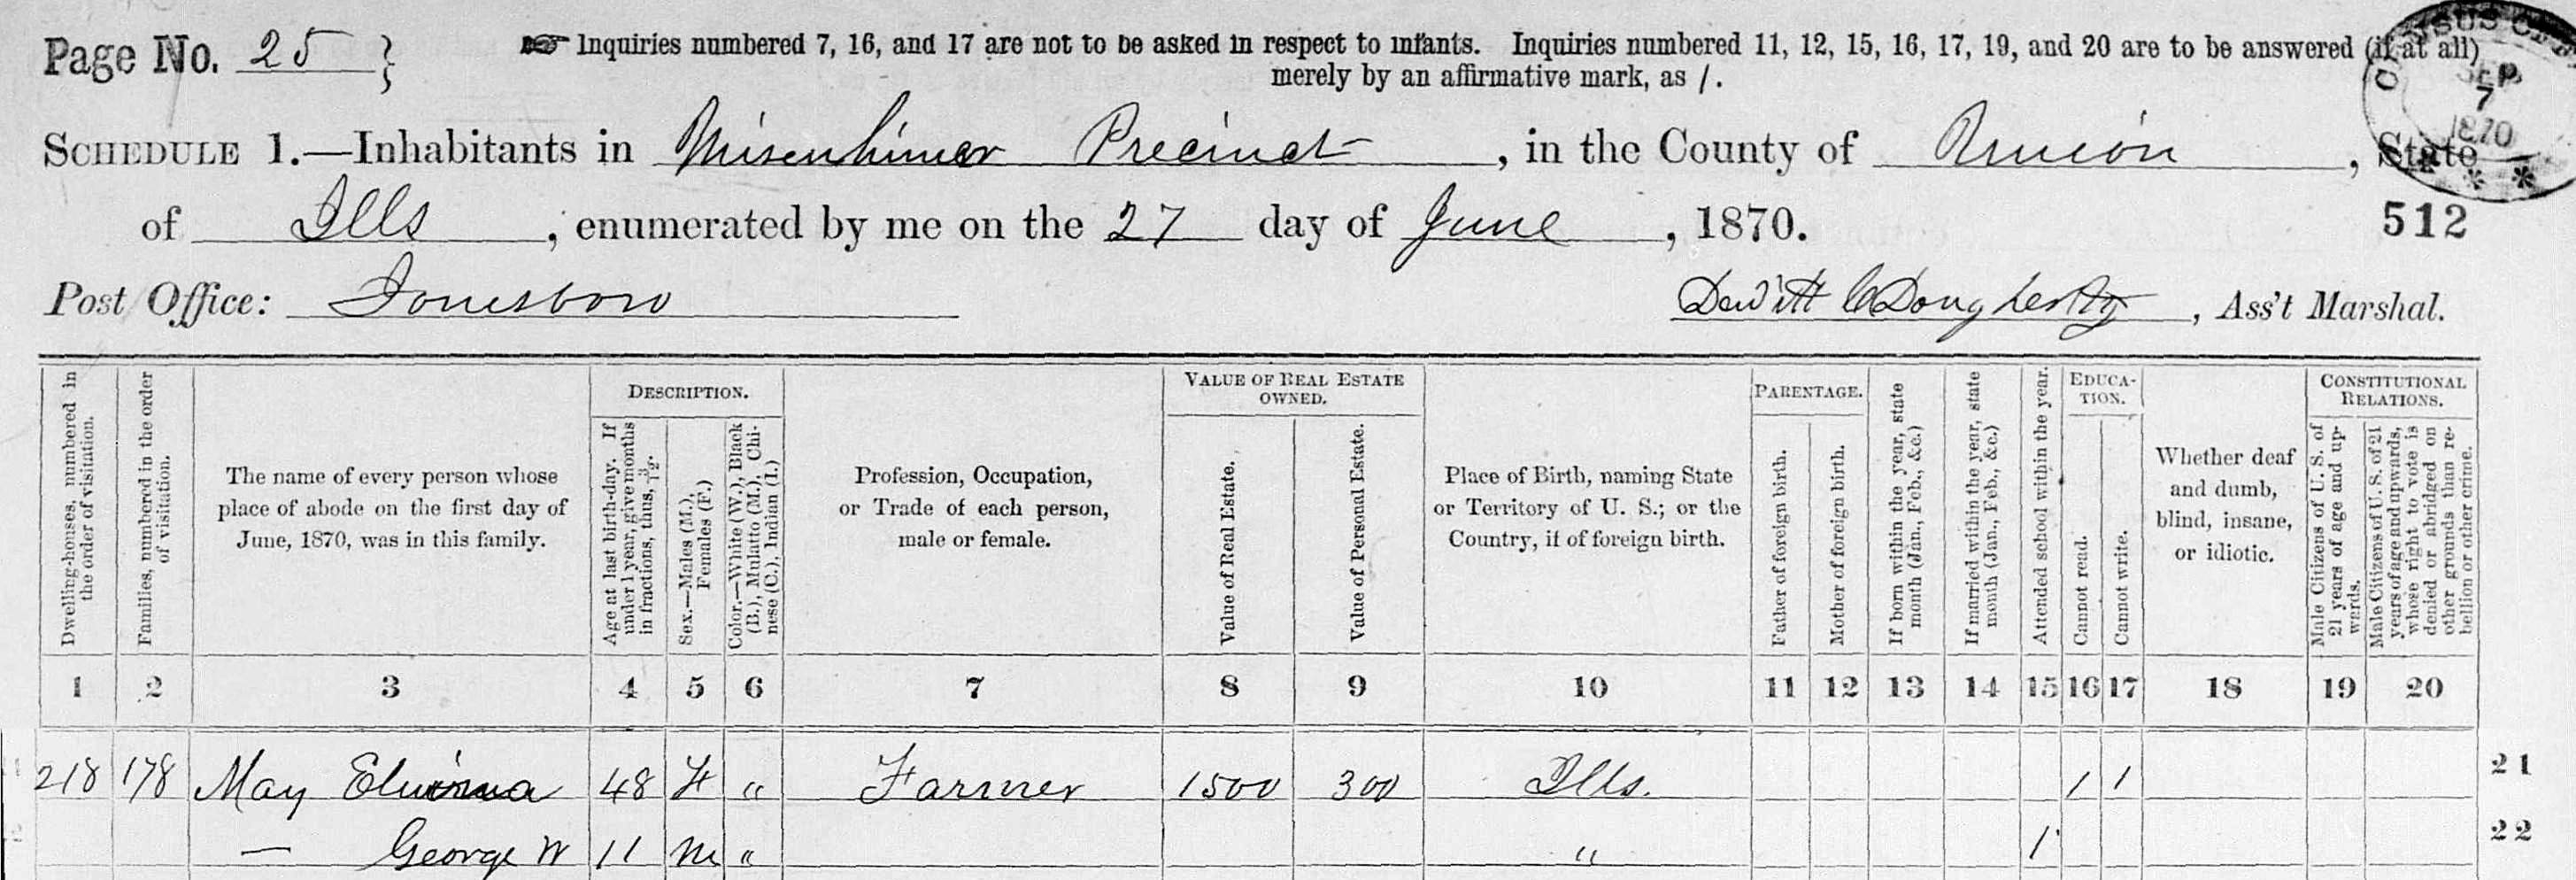 Page No. 25 }
☞ Inquiries numbered 7, 16, and 17 are not to be asked in respect to infants. Inquiries numbered 11, 12, 15, 16, 17, 19, and 20 are to be answered (if at all)
merely by an affirmative mark, as /.
SEP
7
1870
SCHEDULE 1.—Inhabitants in Misenhimer Precinct, in the County of Union, State
of Ills, enumerated by me on the 27 day of June, 1870.
512
Post Office: Jonesboro
Dewitt C Dougherty, Ass't Marshal.
Dwelling-houses, numbered in the order of visitation.
Families, numbered in the order of visitation.
The name of every person whose place of abode on the first day of June, 1870, was in this family.
DESCRIPTION.
Age at last birth-day. If under 1 year, give months in fractions, thus, 3/12.
Sex.—Males (M.), Females (F.)
Color.—White (W.), Black (B.), Mulatto (M.), Chinese (C.), Indian (I.)
Profession, Occupation, or Trade of each person, male or female.
VALUE OF REAL ESTATE OWNED.
Value of Real Estate.
Value of Personal Estate.
Place of Birth, naming State or Territory of U. S.; or the Country, if of foreign birth.
PARENTAGE.
Father of foreign birth.
Mother of foreign birth.
If born within the year, state month (Jan., Feb., &c.)
If married within the year, state month (Jan., Feb., &c.)
Attended school within the year.
EDUCATION.
Cannot read.
Cannot write.
Whether deaf and dumb, blind, insane, or idiotic.
CONSTITUTIONAL RELATIONS.
Male Citizens of U. S. of 21 years of age and upwards.
Male Citizens of U. S. of 21 years of age and upwards, whose right to vote is denied or abridged on other grounds than rebellion or other crime.
1 2 3 4 5 6 7 8 9 10 11 12 13 14 15 16 17 18 19 20
218 178 May 48 F " Farmer 1500 300 Ills. 1 1 21
— George W 11 M " " 1 22